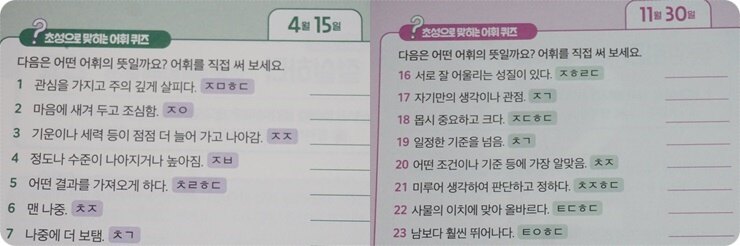 4월 15일
? 초성으로 맞히는 어휘 퀴즈
다음은 어떤 어휘의 뜻일까요? 어휘를 직접 써 보세요.
1 관심을 가지고 주의 깊게 살피다. ㅈㅁㅎㄷ
2 마음에 새겨 두고 조심함. ㅈㅇ
3 기운이나 세력 등이 점점 더 늘어 가고 나아감. ㅈㅈ
4 정도나 수준이 나아지거나 높아짐. ㅈㅂ
5 어떤 결과를 가져오게 하다. ㅊㄹㅎㄷ
6 맨 나중. ㅊㅈ
7 나중에 더 보탬. ㅊㄱ
11월 30일
? 초성으로 맞히는 어휘 퀴즈
다음은 어떤 어휘의 뜻일까요? 어휘를 직접 써 보세요.
16 서로 잘 어울리는 성질이 있다. ㅈㅎㄹㄷ
17 자기만의 생각이나 관점. ㅈㄱ
18 몹시 중요하고 크다. ㅈㄷㅎㄷ
19 일정한 기준을 넘음. ㅊㄱ
20 어떤 조건이나 기준 등에 가장 알맞음. ㅊㅈ
21 미루어 생각하여 판단하고 정하다. ㅊㅈㅎㄷ
22 사물의 이치에 맞아 올바르다. ㅌㄷㅎㄷ
23 남보다 훨씬 뛰어나다. ㅌㅇㅎㄷ